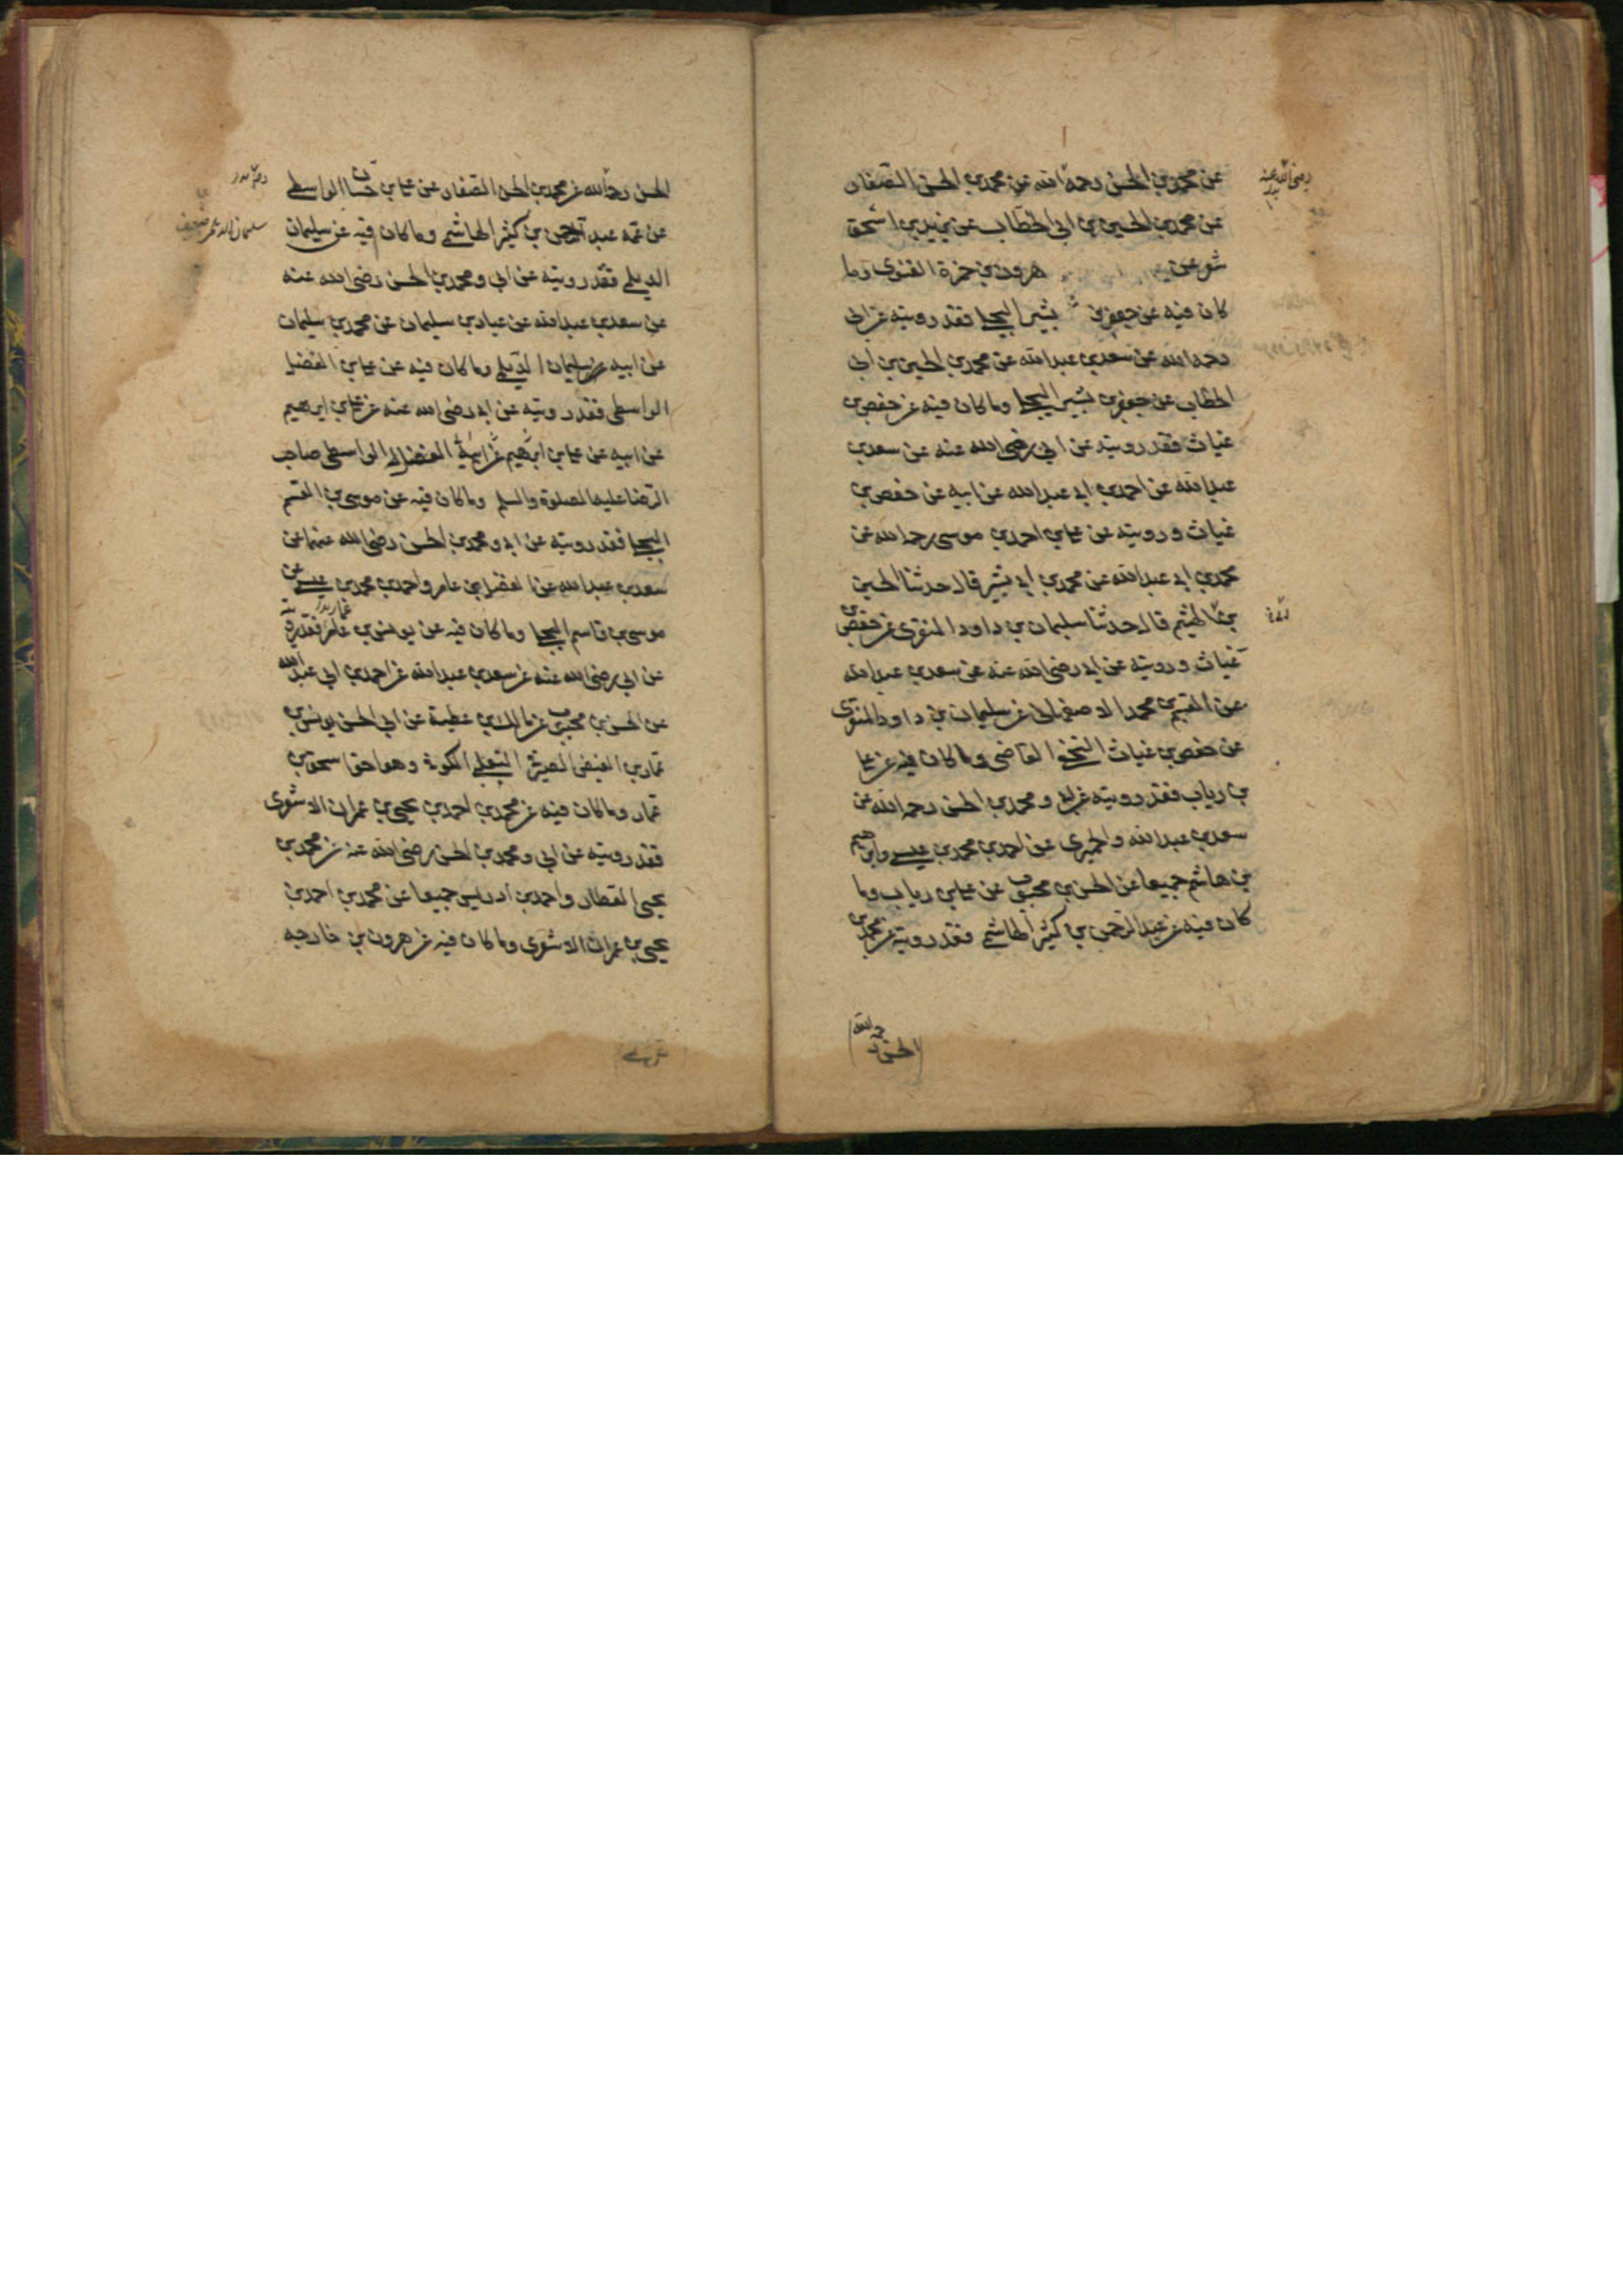 عن محمد بن الحسن رحمه الله عن محمد بن الحسن الصفار
رضى الله عنه
عن محمد بن الحسين بن ابى الخطاب عن يزيد بن اسحق
شعر عن هرون بن حمزة الغنوى وما
كان فيه عن جعفر بن بشير البجلى فقد رويته عن ابى
رحمه الله عن سعد بن عبد الله عن محمد بن الحسين بن ابى
الخطاب عن جعفر بن بشير البجلى وما كان فيه عن حفص بن
غياث فقد رويته عن ابى رضى الله عنه عن سعد بن
عبد الله عن احمد بن ابى عبد الله عن ابيه عن حفص بن
غياث ورويته عن على بن احمد بن موسى رحمه الله عن
محمد بن ابى عبد الله عن محمد بن ابى بشير قال حدثنا الحسين
بن الهيثم قال حدثنا سليمان بن داود المنقرى عن حفص بن
غياث ورويته عن ابى رضى الله عنه عن سعد بن عبد الله
عن القسم بن محمد الاصفهانى عن سليمان بن داود المنقرى
عن حفص بن غياث النخعى القاضى وما كان فيه عن على
بن رياب فقد رويته عن ابى ومحمد بن الحسن رحمه الله عن
سعد بن عبد الله والحميرى عن احمد بن محمد بن عيسى وابرهيم
بن هاشم جميعا عن الحسن بن محبوب عن على بن رياب وما
كان فيه عن عبد الرحمن بن كثير الهاشمى فقد رويته عن محمد بن
الحسن رحمه الله
الحسن رحمه الله عن محمد بن الحسن الصفار عن على بن حسان الواسطى
عن عمه عبد الرحمن بن كثير الهاشمى وما كان فيه عن سليمان
الديلمى فقد رويته عن ابى ومحمد بن الحسن رضى الله عنه
عن سعد بن عبد الله عن عباد بن سليمان عن محمد بن سليمان
عن ابيه عن سليمان الديلمى وما كان فيه عن على بن الفضل
الواسطى فقد رويته عن ابى رضى الله عنه عن على بن ابرهيم
عن ابيه عن على بن الفضل الواسطى صاحب
الرضا عليه الصلوة والسلم وما كان فيه عن موسى بن القسم
البجلى فقد رويته عن ابى ومحمد بن الحسن رضى الله عنهما عن
سعد بن عبد الله عن الفضل بن عامر واحمد بن محمد بن عيسى عن
موسى بن قاسم البجلى وما كان فيه عن يونس بن عمار فقد رويته
عن ابى رضى الله عنه عن سعد بن عبد الله عن احمد بن ابى عبد الله
عن الحسن بن محبوب عن مالك بن عطية عن ابى الحسن يونس بن
عمار بن الفيض الصيرفى التغلبى الكوفى وهو اخو اسحق بن
عمار وما كان فيه عن محمد بن احمد بن يحيى بن عمران الاشعرى
فقد رويته عن ابى ومحمد بن الحسن رضى الله عنه عن محمد بن
يحيى العطار واحمد بن ادريس جميعا عن محمد بن احمد بن
يحيى بن عمران الاشعرى وما كان فيه عن هرون بن خارجه